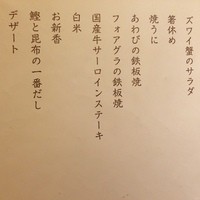 ズワイ蟹のサラダ
箸休め
焼うに
あわびの鉄板焼
フォアグラの鉄板焼
国産牛サーロインステーキ
白米
お新香
鰹と昆布の一番だし
デザート